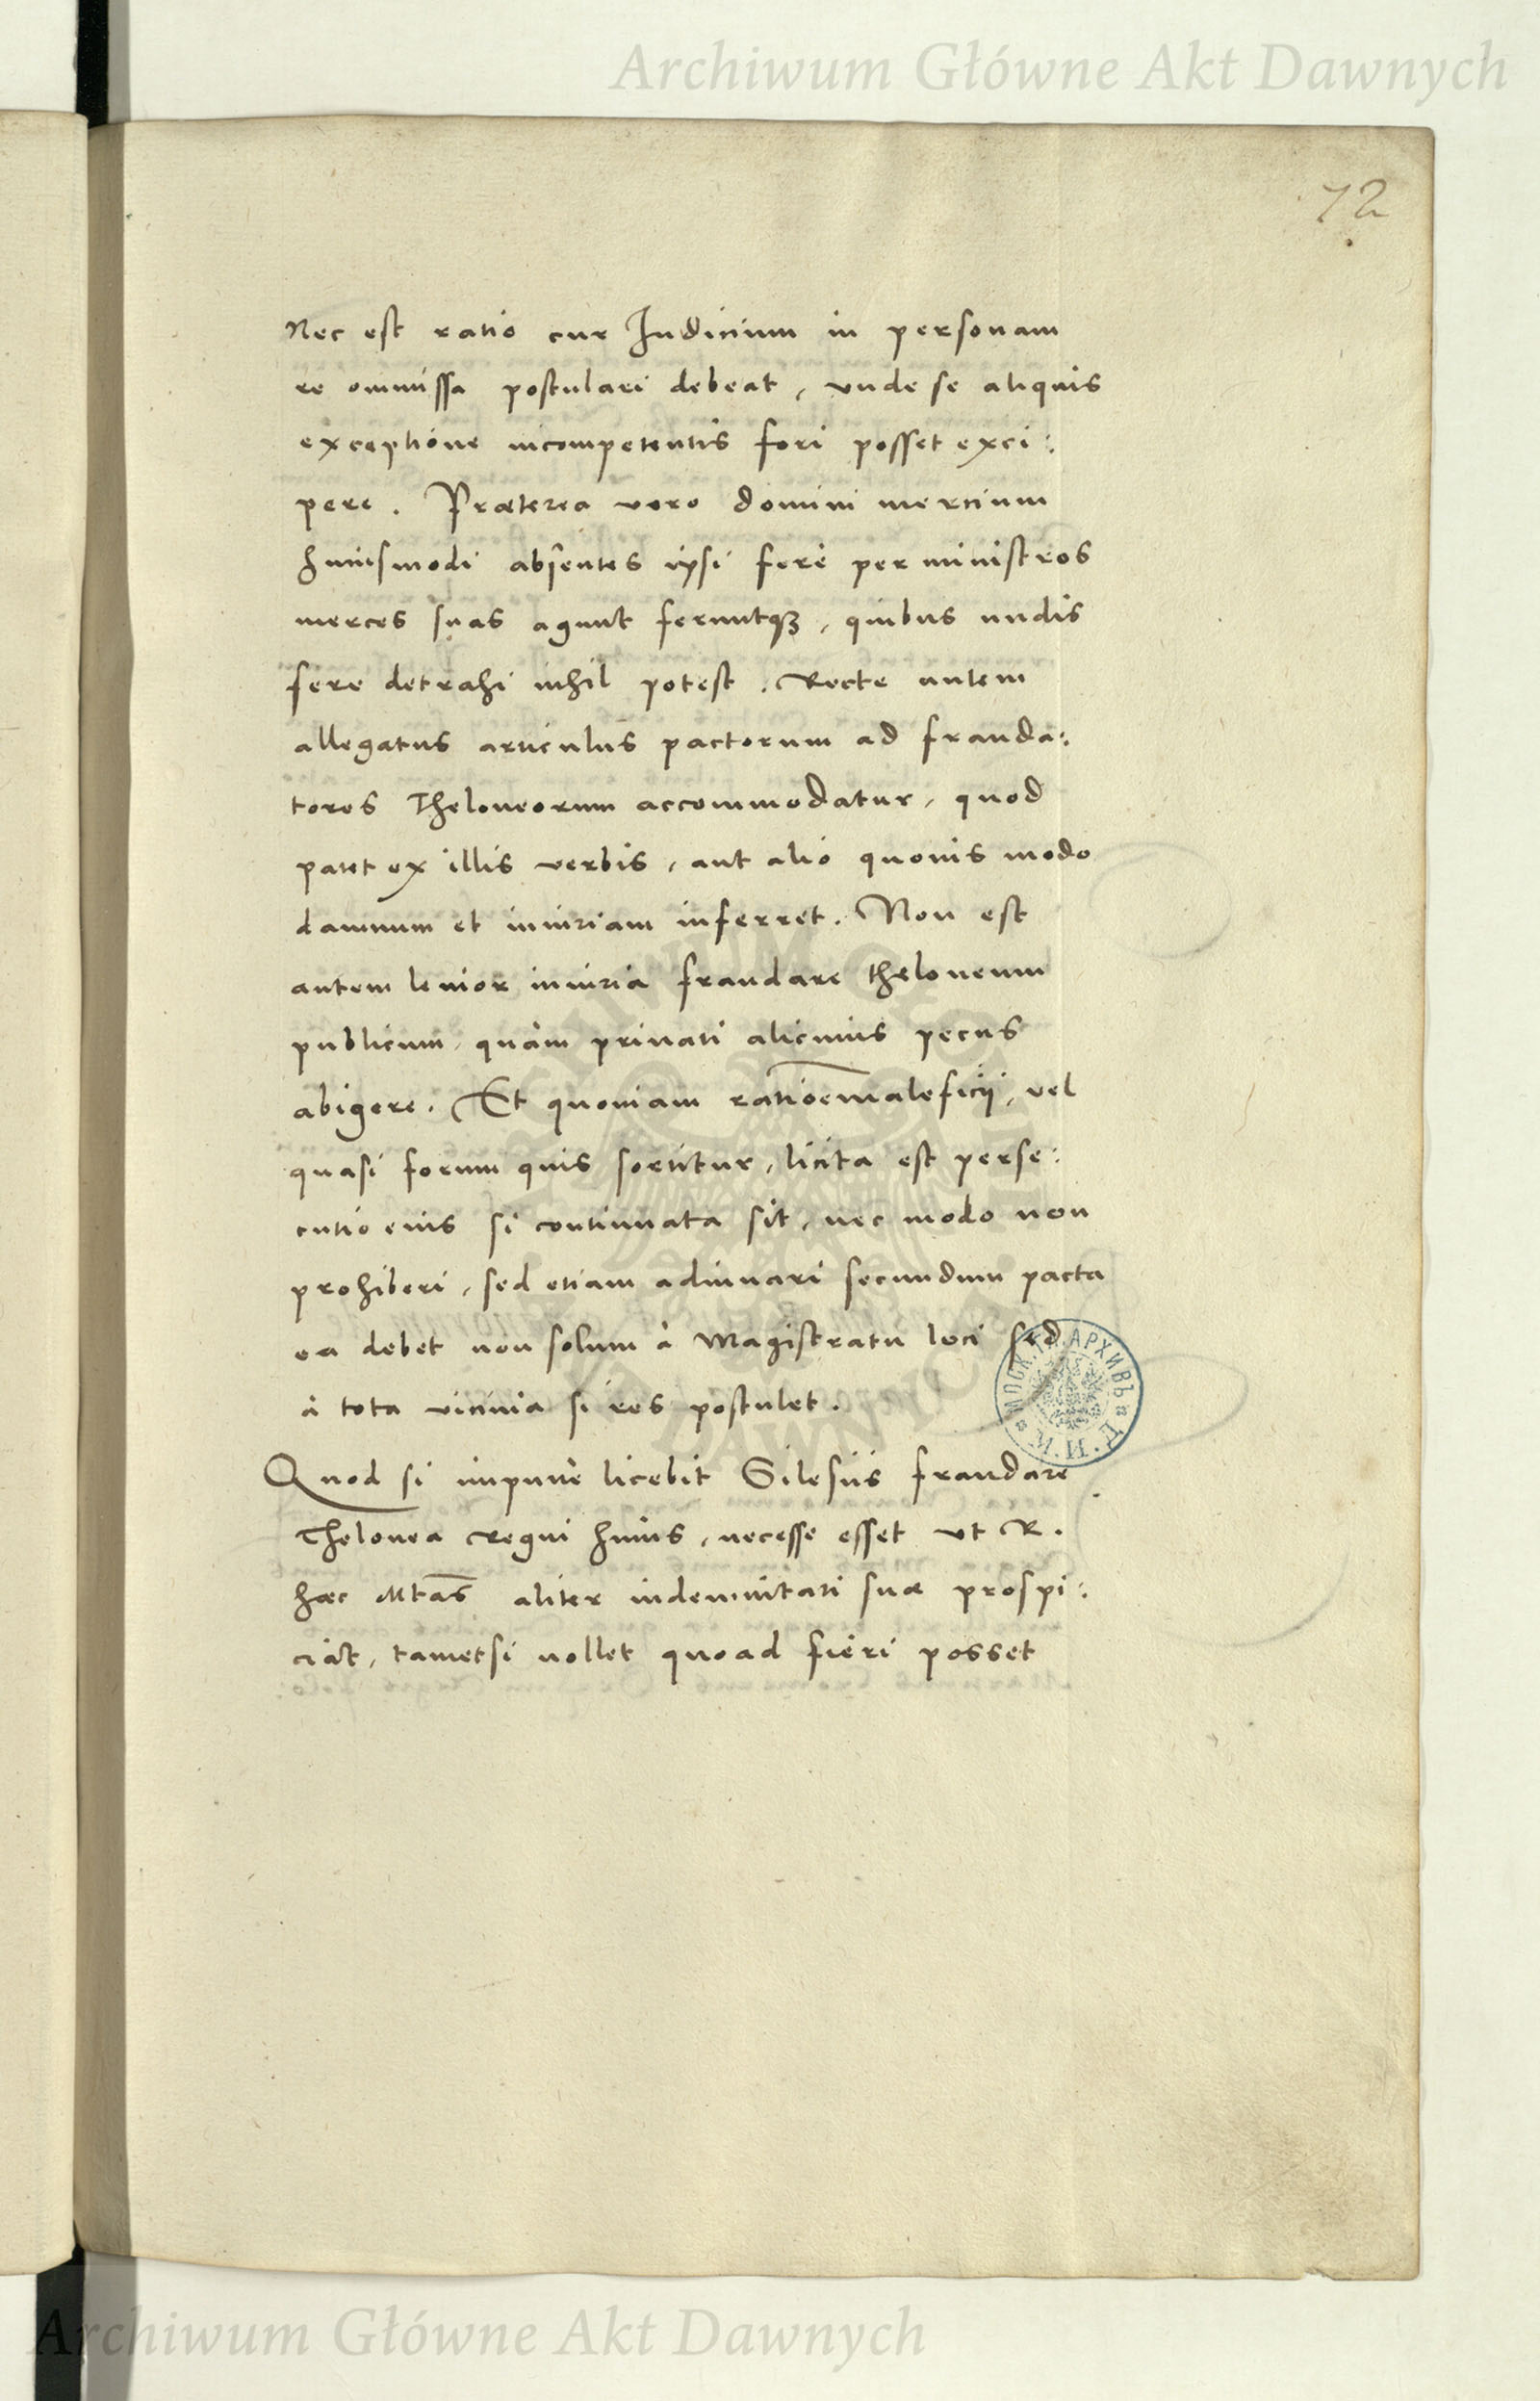 Archiwum Główne Akt Dawnych
72
Nec est ratio cur Iudicium in personam
re omissa postulari debeat, vnde se aliquis
exceptione incompetentis fori posset exci:
pere. Præterea vero domini mercium
huiusmodi absentes ipsi ferè per ministros
merces suas agunt feruntq3, quibus nudis
fere detrahi nihil potest. Recte autem
allegatus articulus pactorum ad frauda:
tores Theloneorum accommodatur, quod
patet ex illis verbis, aut alio quouis modo
damnum et iniuriam inferret. Non est
autem leuior iniuria fraudare theloneum
publicum, quàm priuati alicuius pecus
abigere. Et quoniam ratiõe maleficij, vel
quasi forum quis sortitur, licita est perse:
cutio eius si continuata sit, nec modo non
prohiberi, sed etiam adiuuari secundum pacta
ea debet non solum à Magistratu loci sed
à tota vicinia si res postulet.
Quod si impunè licebit Silesiis fraudare
Thelonea Regni huius, necesse esset vt R.
hæc Mtas aliter indemnitati suæ prospi:
ciat, tametsi nollet quoad fieri posset
МОСК. ГЛ. АРХИВЪ
М. И. Д.
Archiwum Główne Akt Dawnych